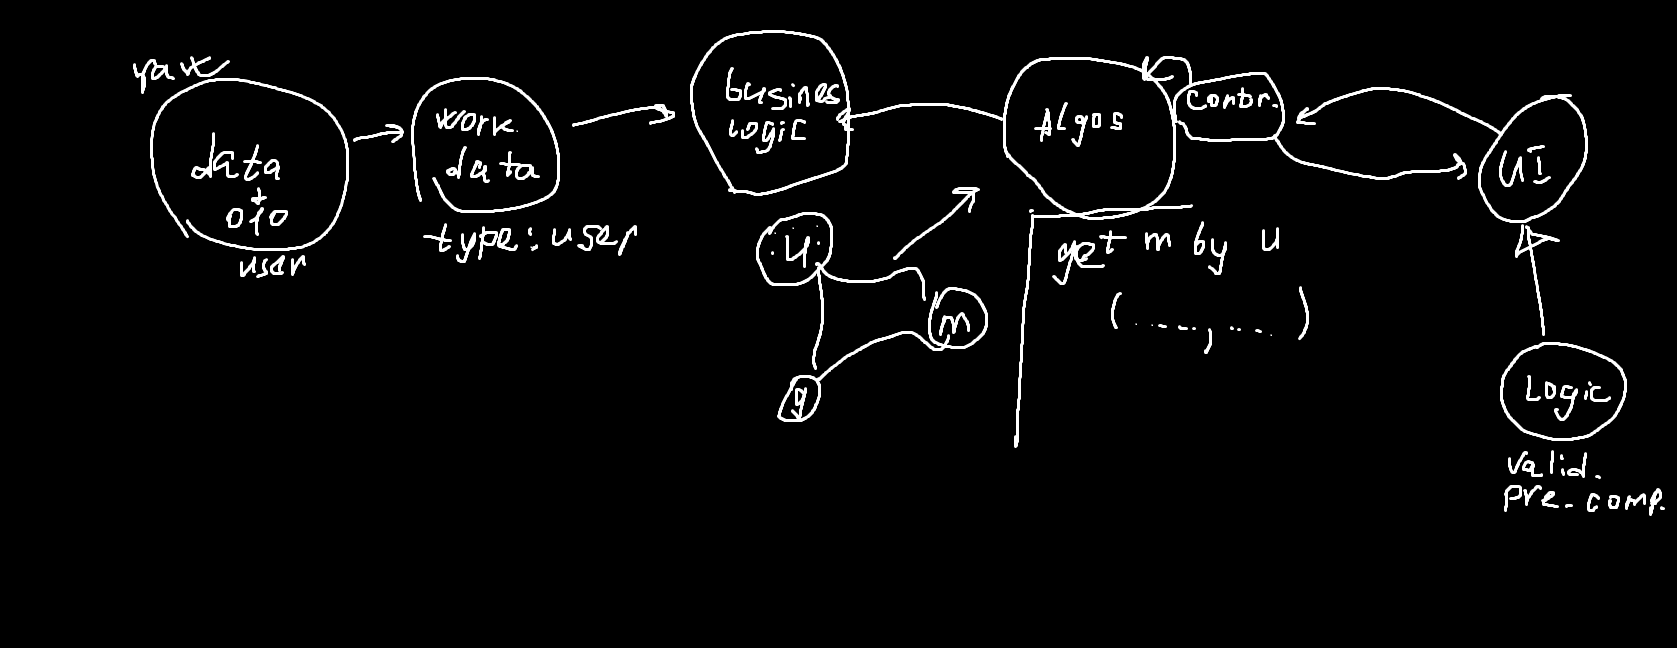 data
+
user
work
data
type: user
busines
logic
u
m
g
Algos
contr.
get m by u
(....., ....)
UI
Logic
valid.
pre-comp.